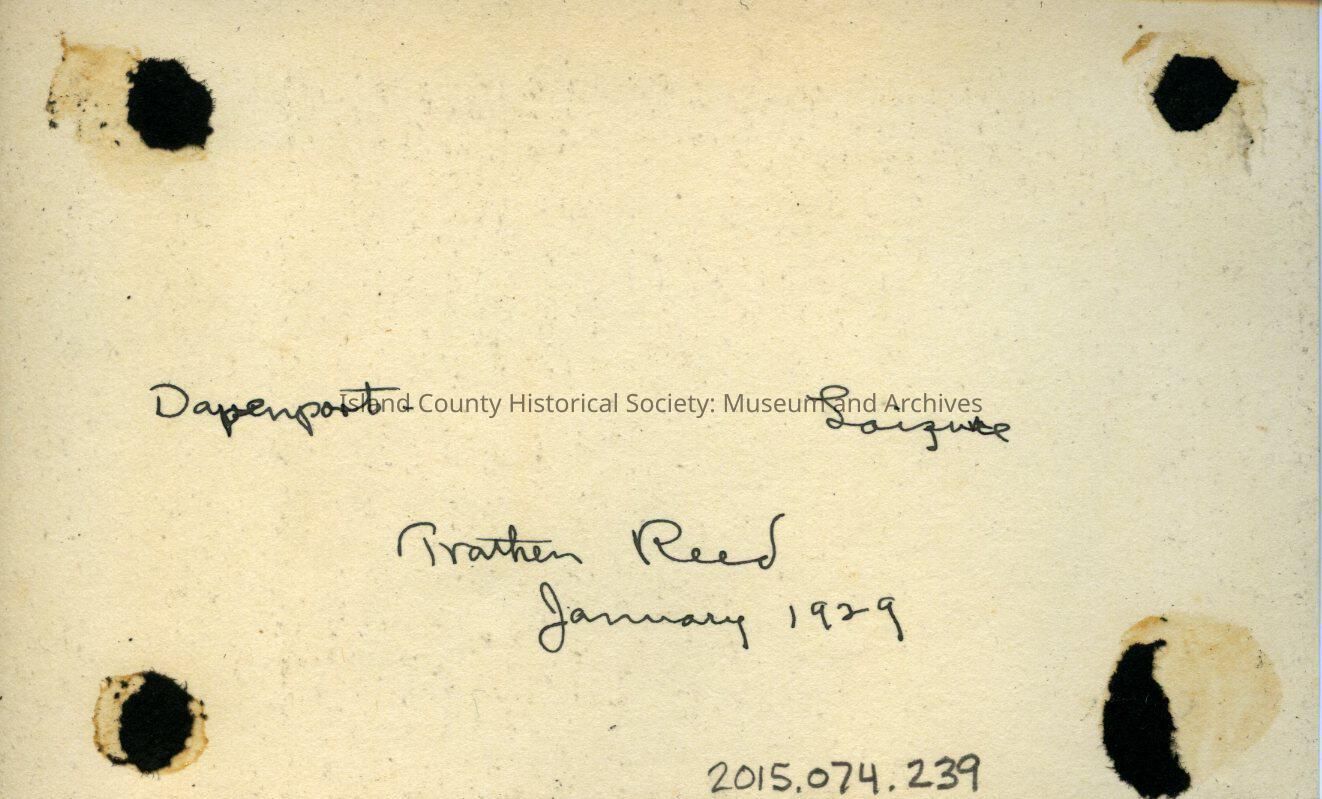 Dapenport- Seizure
Island County Historical Society: Museum and Archives
Trathen Reed
January 1929
2015.074.239